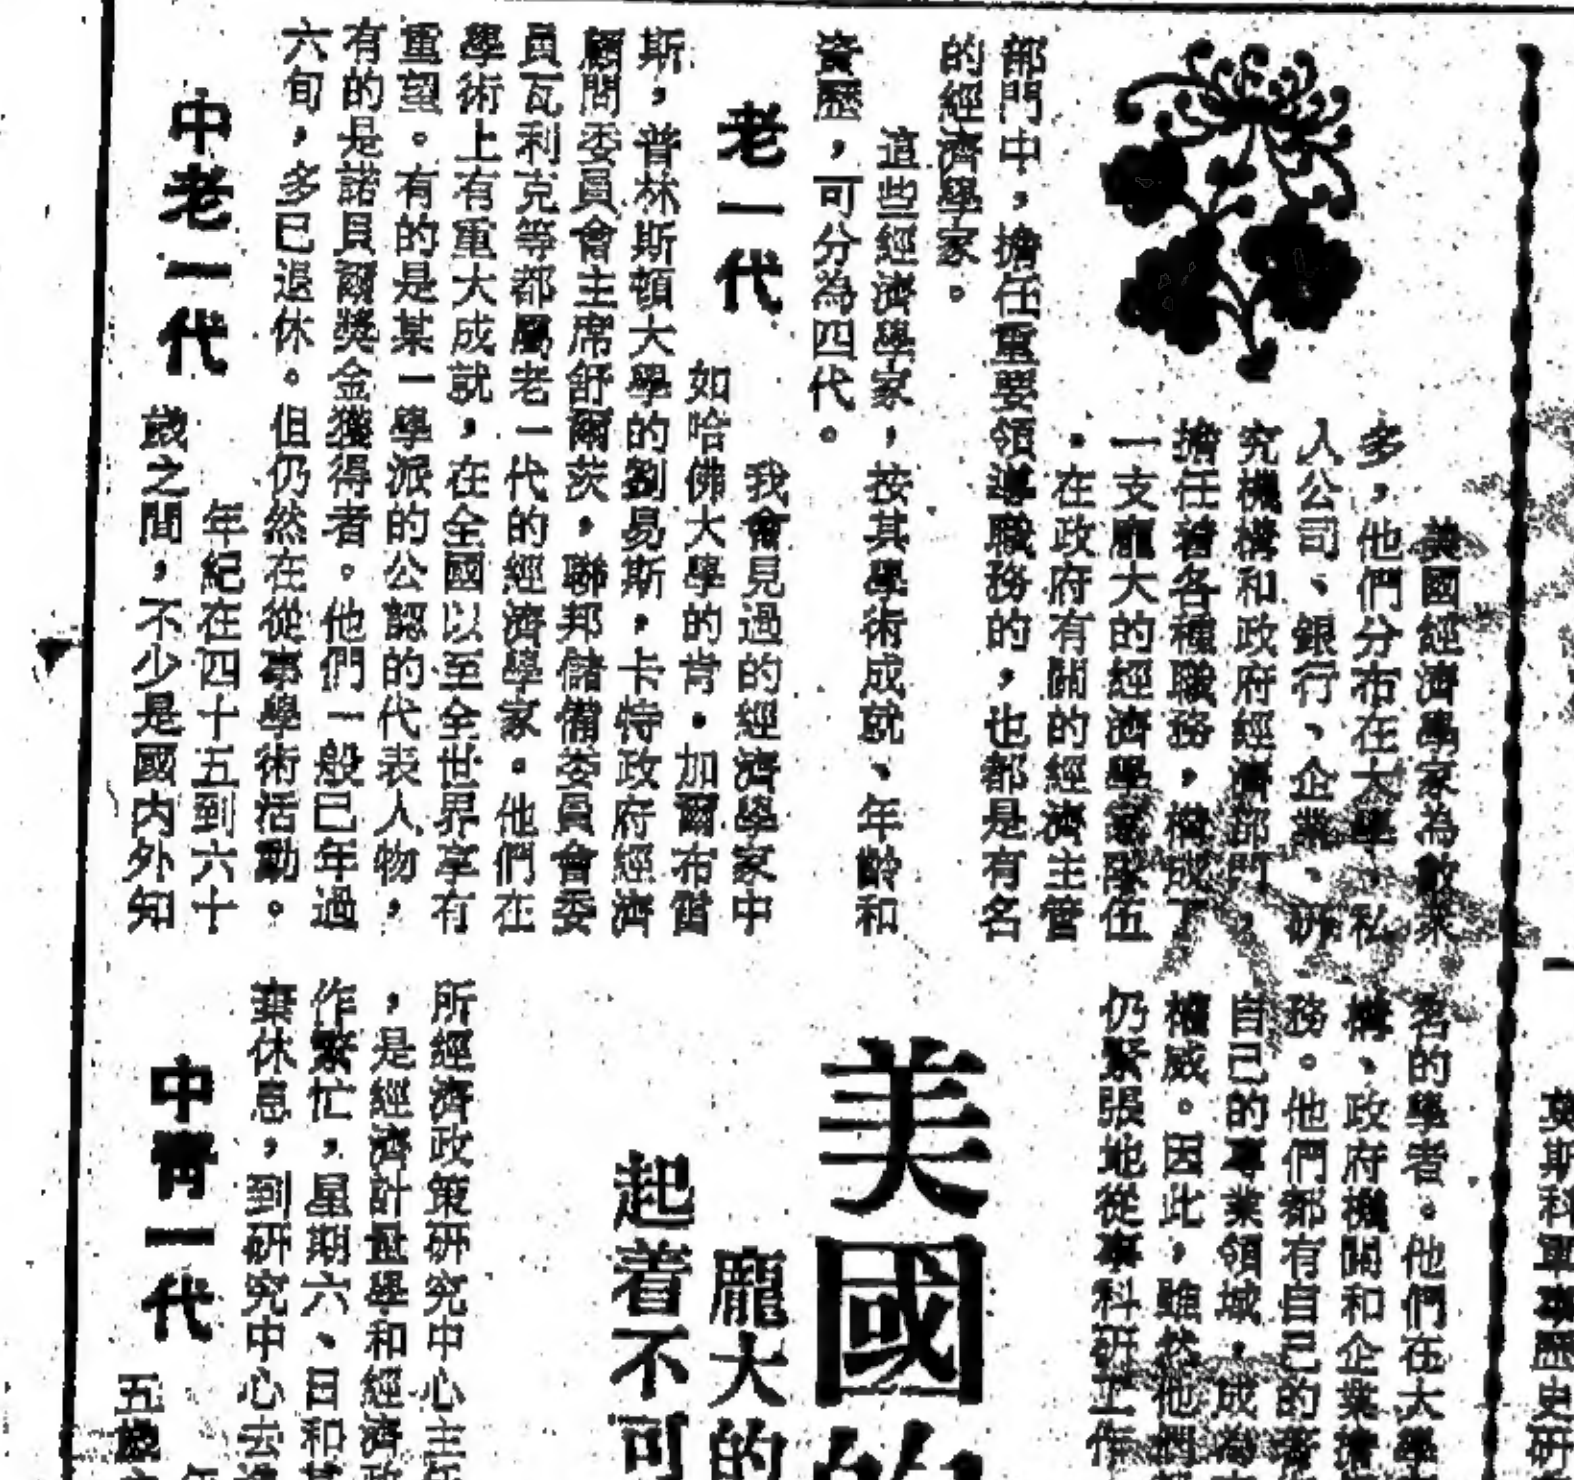 美國經濟學家為數眾
多，他們分布在大學、私
人公司、銀行、企業、研
究機構和政府經濟部門，
擔任着各種職務，構成了
一支龐大的經濟學家隊伍
。在政府有關的經濟主管
部門中，擔任重要領導職務的，也都是有名
的經濟學家。
這些經濟學家，按其學術成就、年齡和
資歷，可分為四代。
老一代
我會見過的經濟學家中
如哈佛大學的肯・加爾布雷
斯，普林斯頓大學的劉易斯，卡特政府經濟
顧問委員會主席舒爾茨，聯邦儲備委員會委
員瓦利克等都屬老一代的經濟學家。他們在
學術上有重大成就，在全國以至全世界享有
重望。有的是某一學派的公認的代表人物，
有的是諾貝爾獎金獲得者。他們一般已年過
六旬，多已退休。但仍然在從事學術活動。
中老一代
年紀在四十五到六十
歲之間，不少是國內外知
名的學者。他們在大學
構、政府機關和企業擔
務。他們都有自己的著
自己的專業領域，成為
權威。因此，雖然他們
仍緊張地從事科研工作
美國的
龐大的
起着不可
所經濟政策研究中心主任
，是經濟計量學和經濟政
作繁忙，星期六、日和某
棄休息，到研究中心去
中青一代
五歲
英斯科軍事歷史研